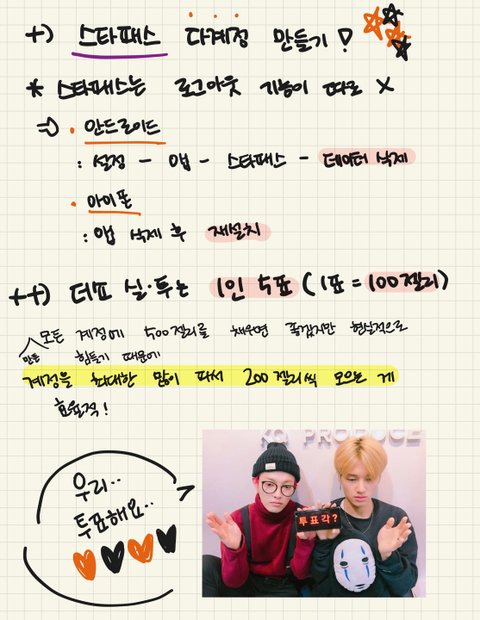 +) 스타패스 다계정 만들기!
* 스타패스는 로그아웃 기능이 따로 X
⇒ • 안드로이드
: 설정 - 앱 - 스타패스 - 데이터 삭제
• 아이폰
: 앱 삭제 후 재설치
++) 더쇼 실·투는 1인 5표 (1표 = 100젤리)
모든 계정에 500젤리를 채우면 좋겠지만 현실적으로
만든
힘들기 때문에
계정을 최대한 많이 파서 200젤리씩 모으는 게
효율적!
KQ PRODUCE
우리..
투표해요..
투표각?